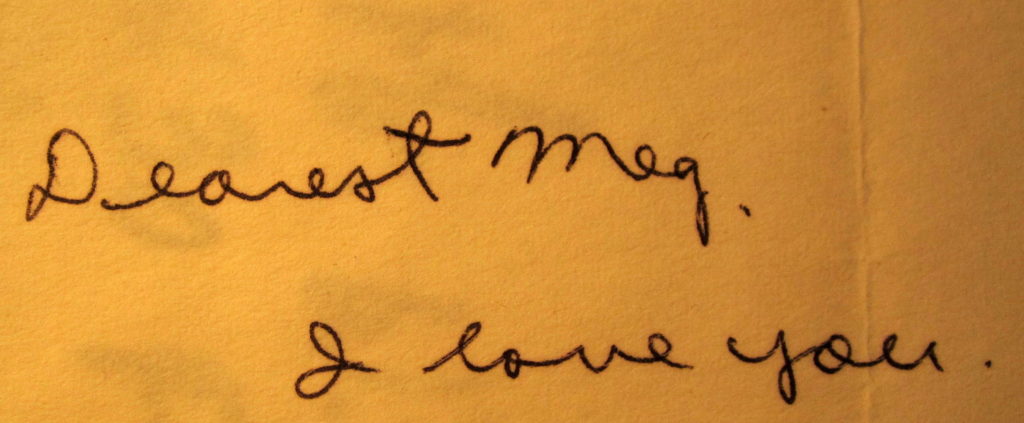 Dearest Meg.
I love you.